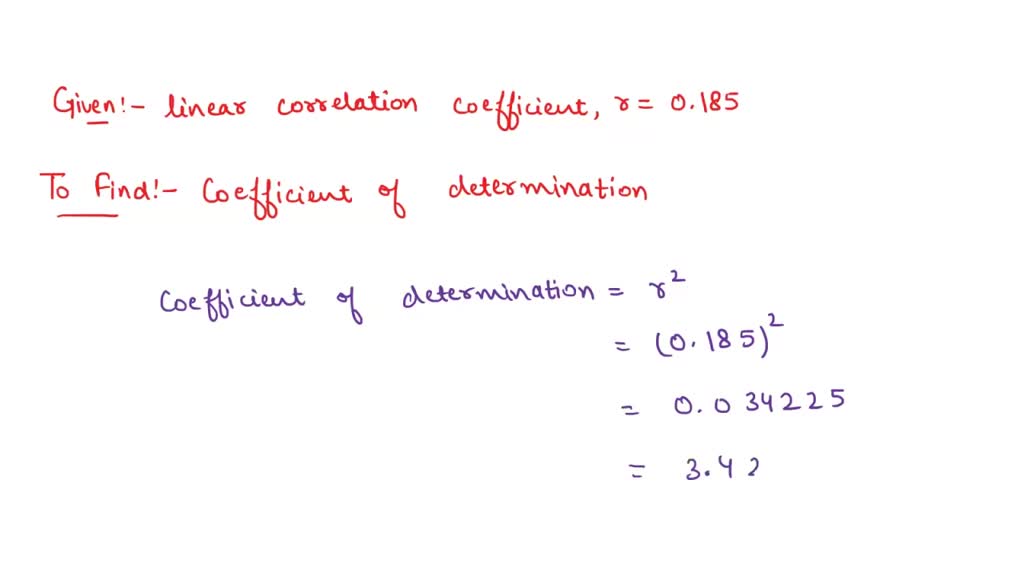 Given:- linear correlation coefficient, r = 0.185
To Find:- Coefficient of determination
Coefficient of determination = r²
= (0.185)²
= 0.034225
= 3.42